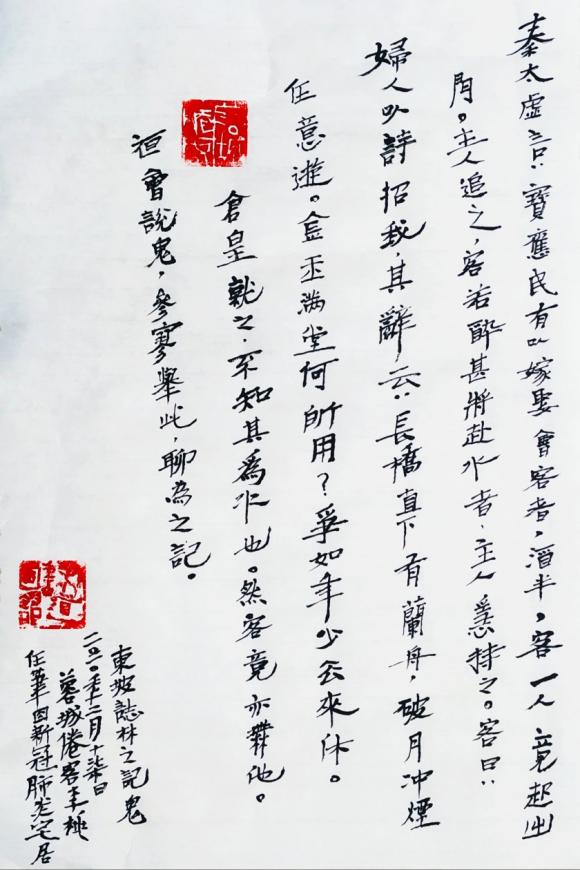 秦太虛言：寶應民有以嫁娶會客者，酒半，客一人竟起出
門。主人追之，客若醉甚將赴水者，主人急持之。客曰：
婦人以詩招我，其辭云：長橋直下有蘭舟，破月冲煙
任意遊。金玉满堂何所用？爭如年少去來休。
倉皇就之，不知其為水也。然客竟亦無他。
會說鬼，參寥舉此，聊為之記。
東坡誌林之記鬼
二〇二〇年二月十柒日
蓉城倦客李
任筆因新冠肺炎宅居